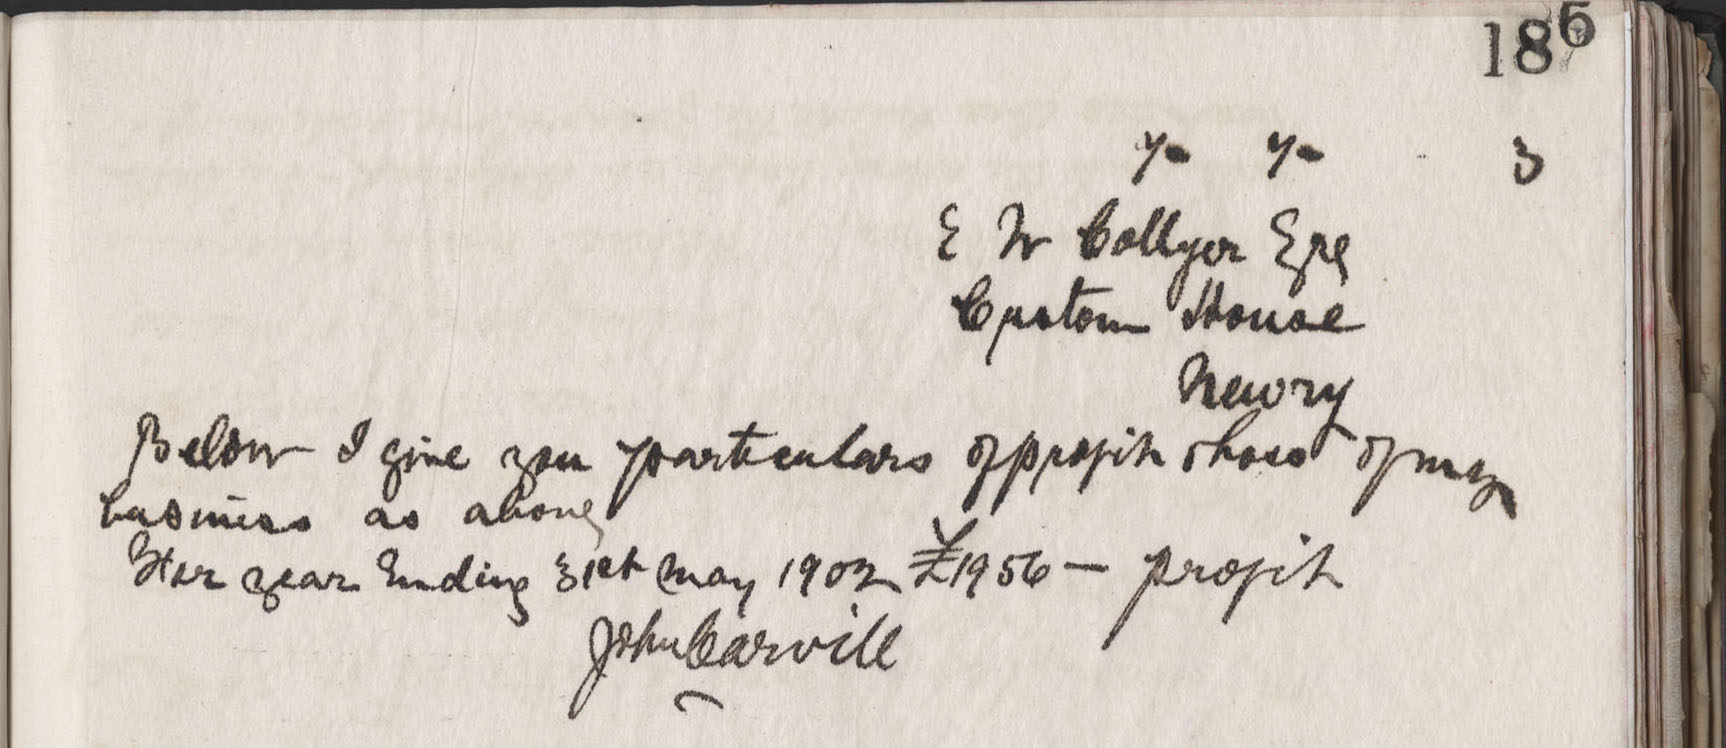 186
7- 7- 3
E W Collyer Esq
Custom House
Newry
Below I give you particulars of profit &amp; loss of my
business as above
For year Ending 31st May 1902 £1956 — profit
John Carvill